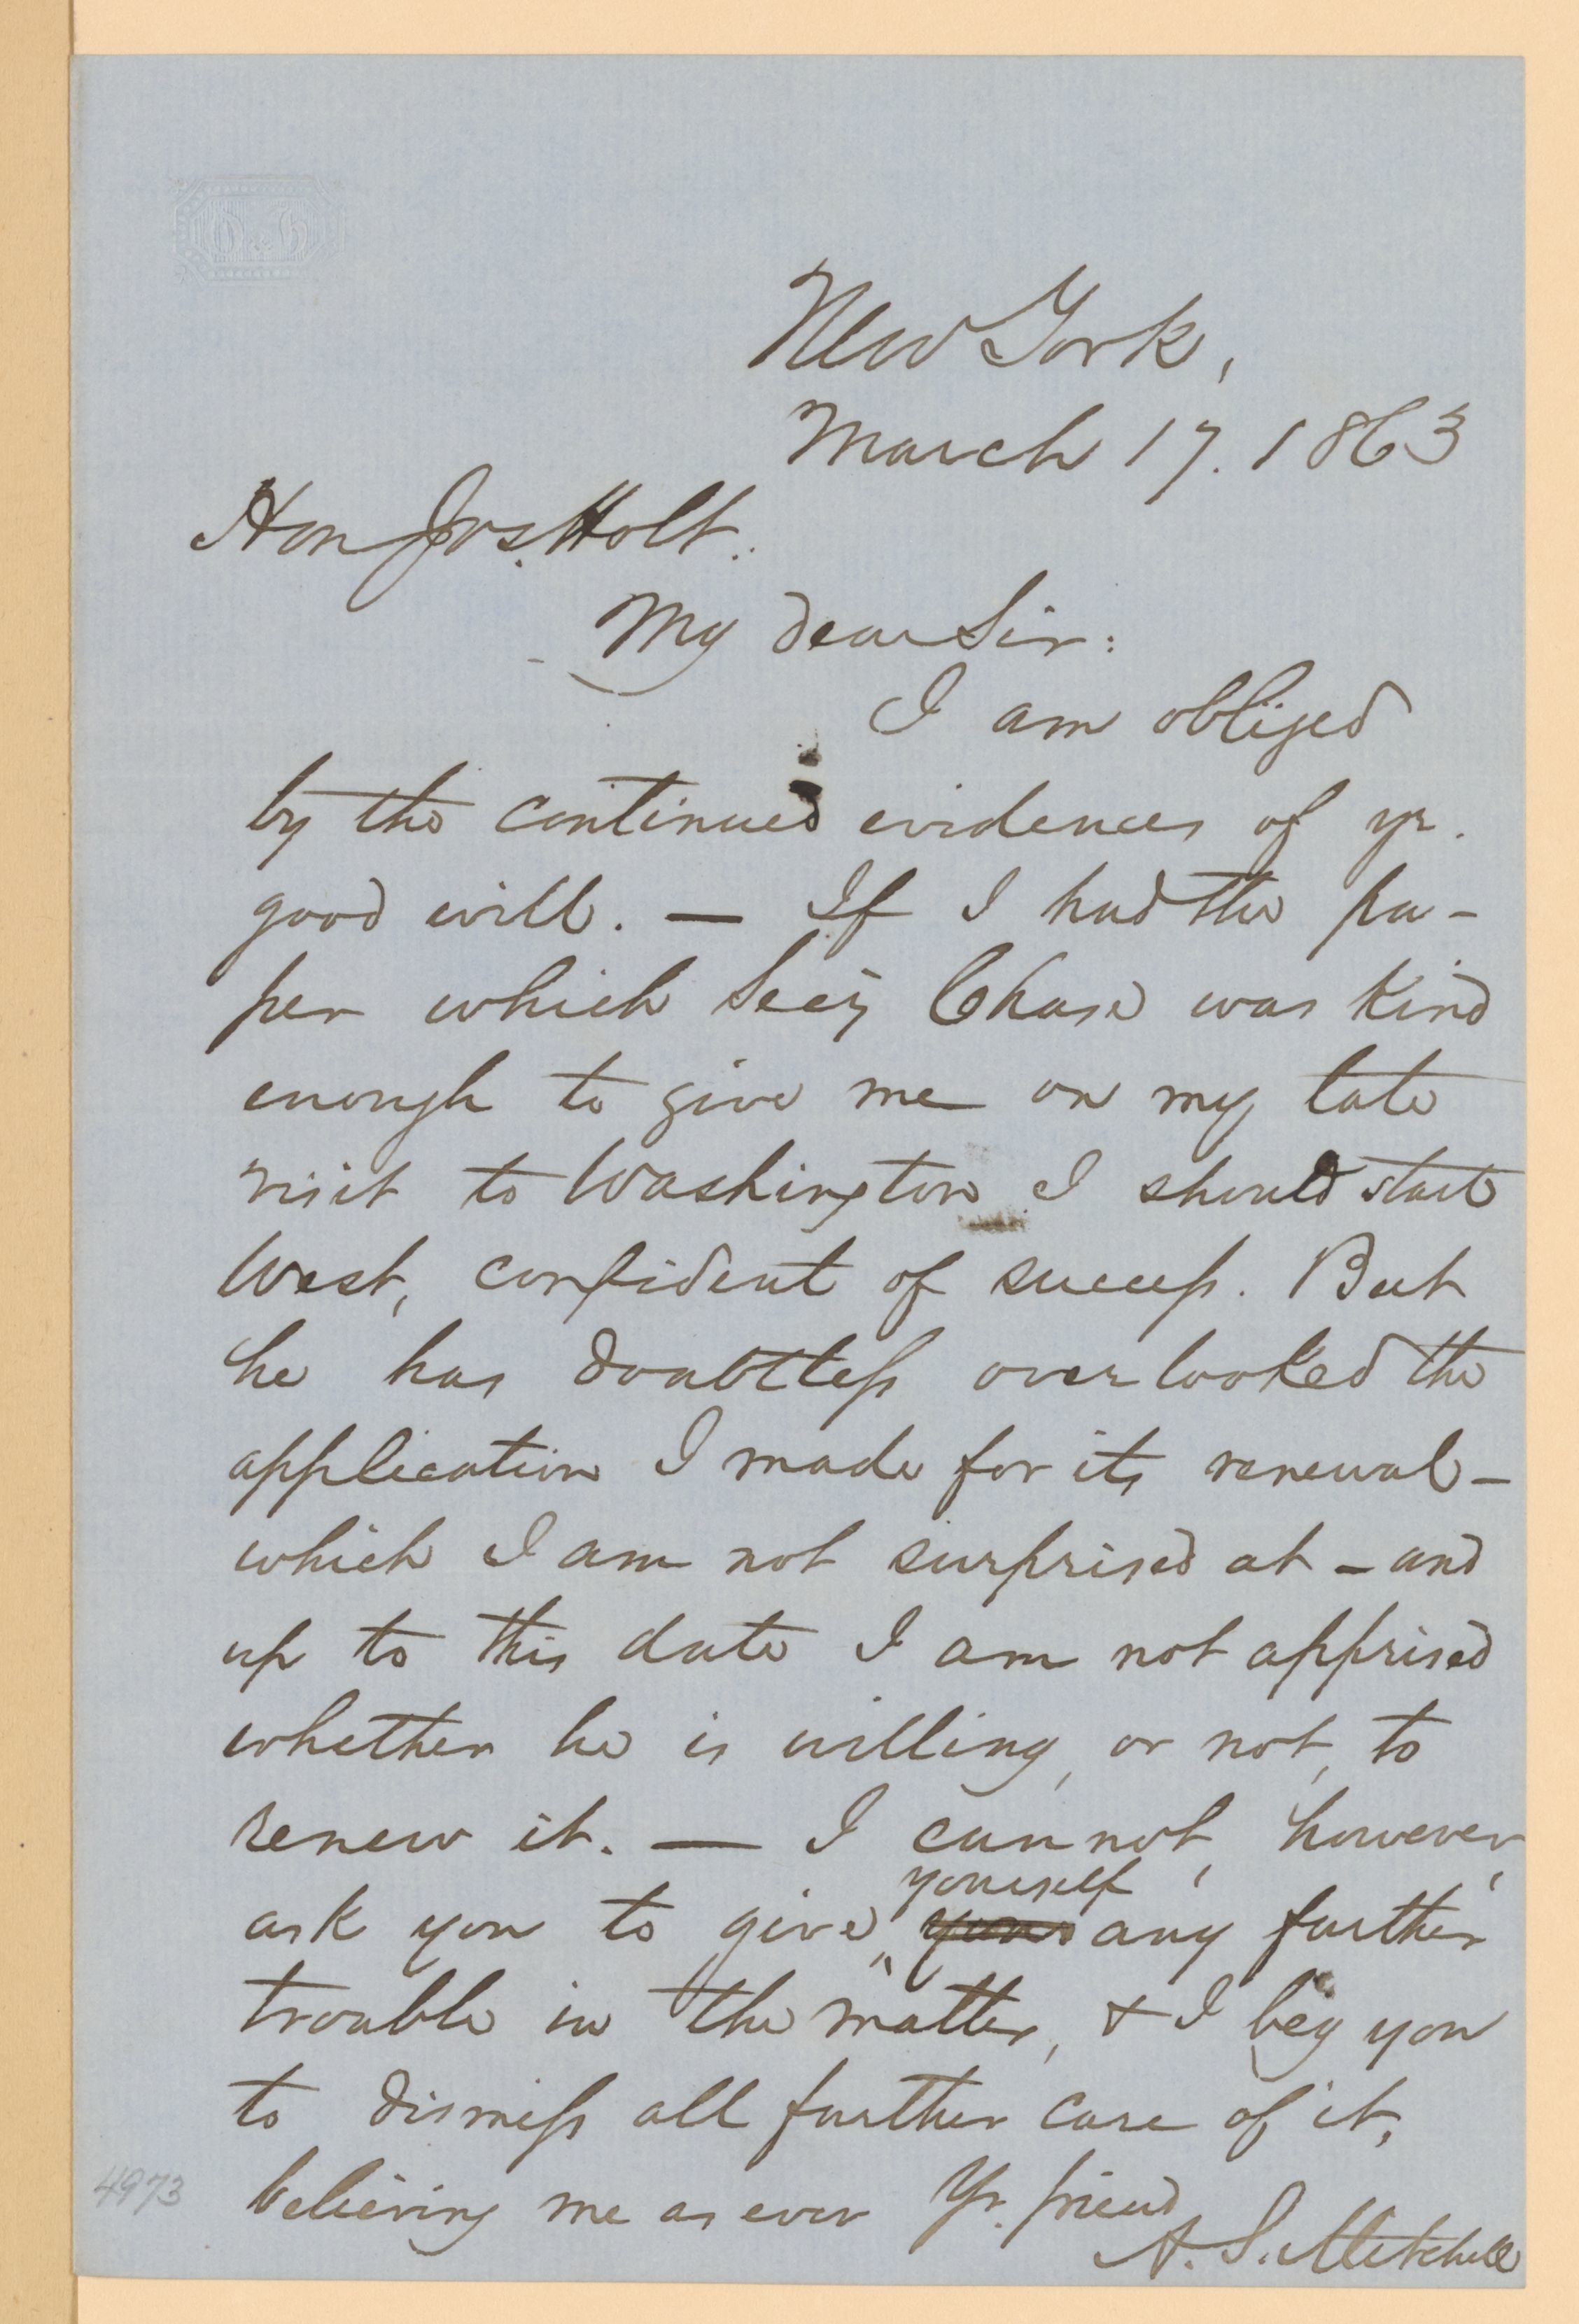 New York,
March 17. 1863
Hon Jos. Holt.
My dear Sir:
I am obliged
by the continued evidences of yr.
good will. — If I had the pa-
per which Secy Chase was kind
enough to give me on my late
visit to Washington I should start
West, confident of success. But
he has doubtless overlooked the
application I made for its renewal -
which I am not surprised at - and
up to this date I am not apprised
whether he is willing, or not, to
renew it. — I cannot, however,
yourself
ask you to give your any further
trouble in the matter, & I beg you
to dismiss all further care of it,
believing me as ever Yr. friend
A. S. Mitchell
4973